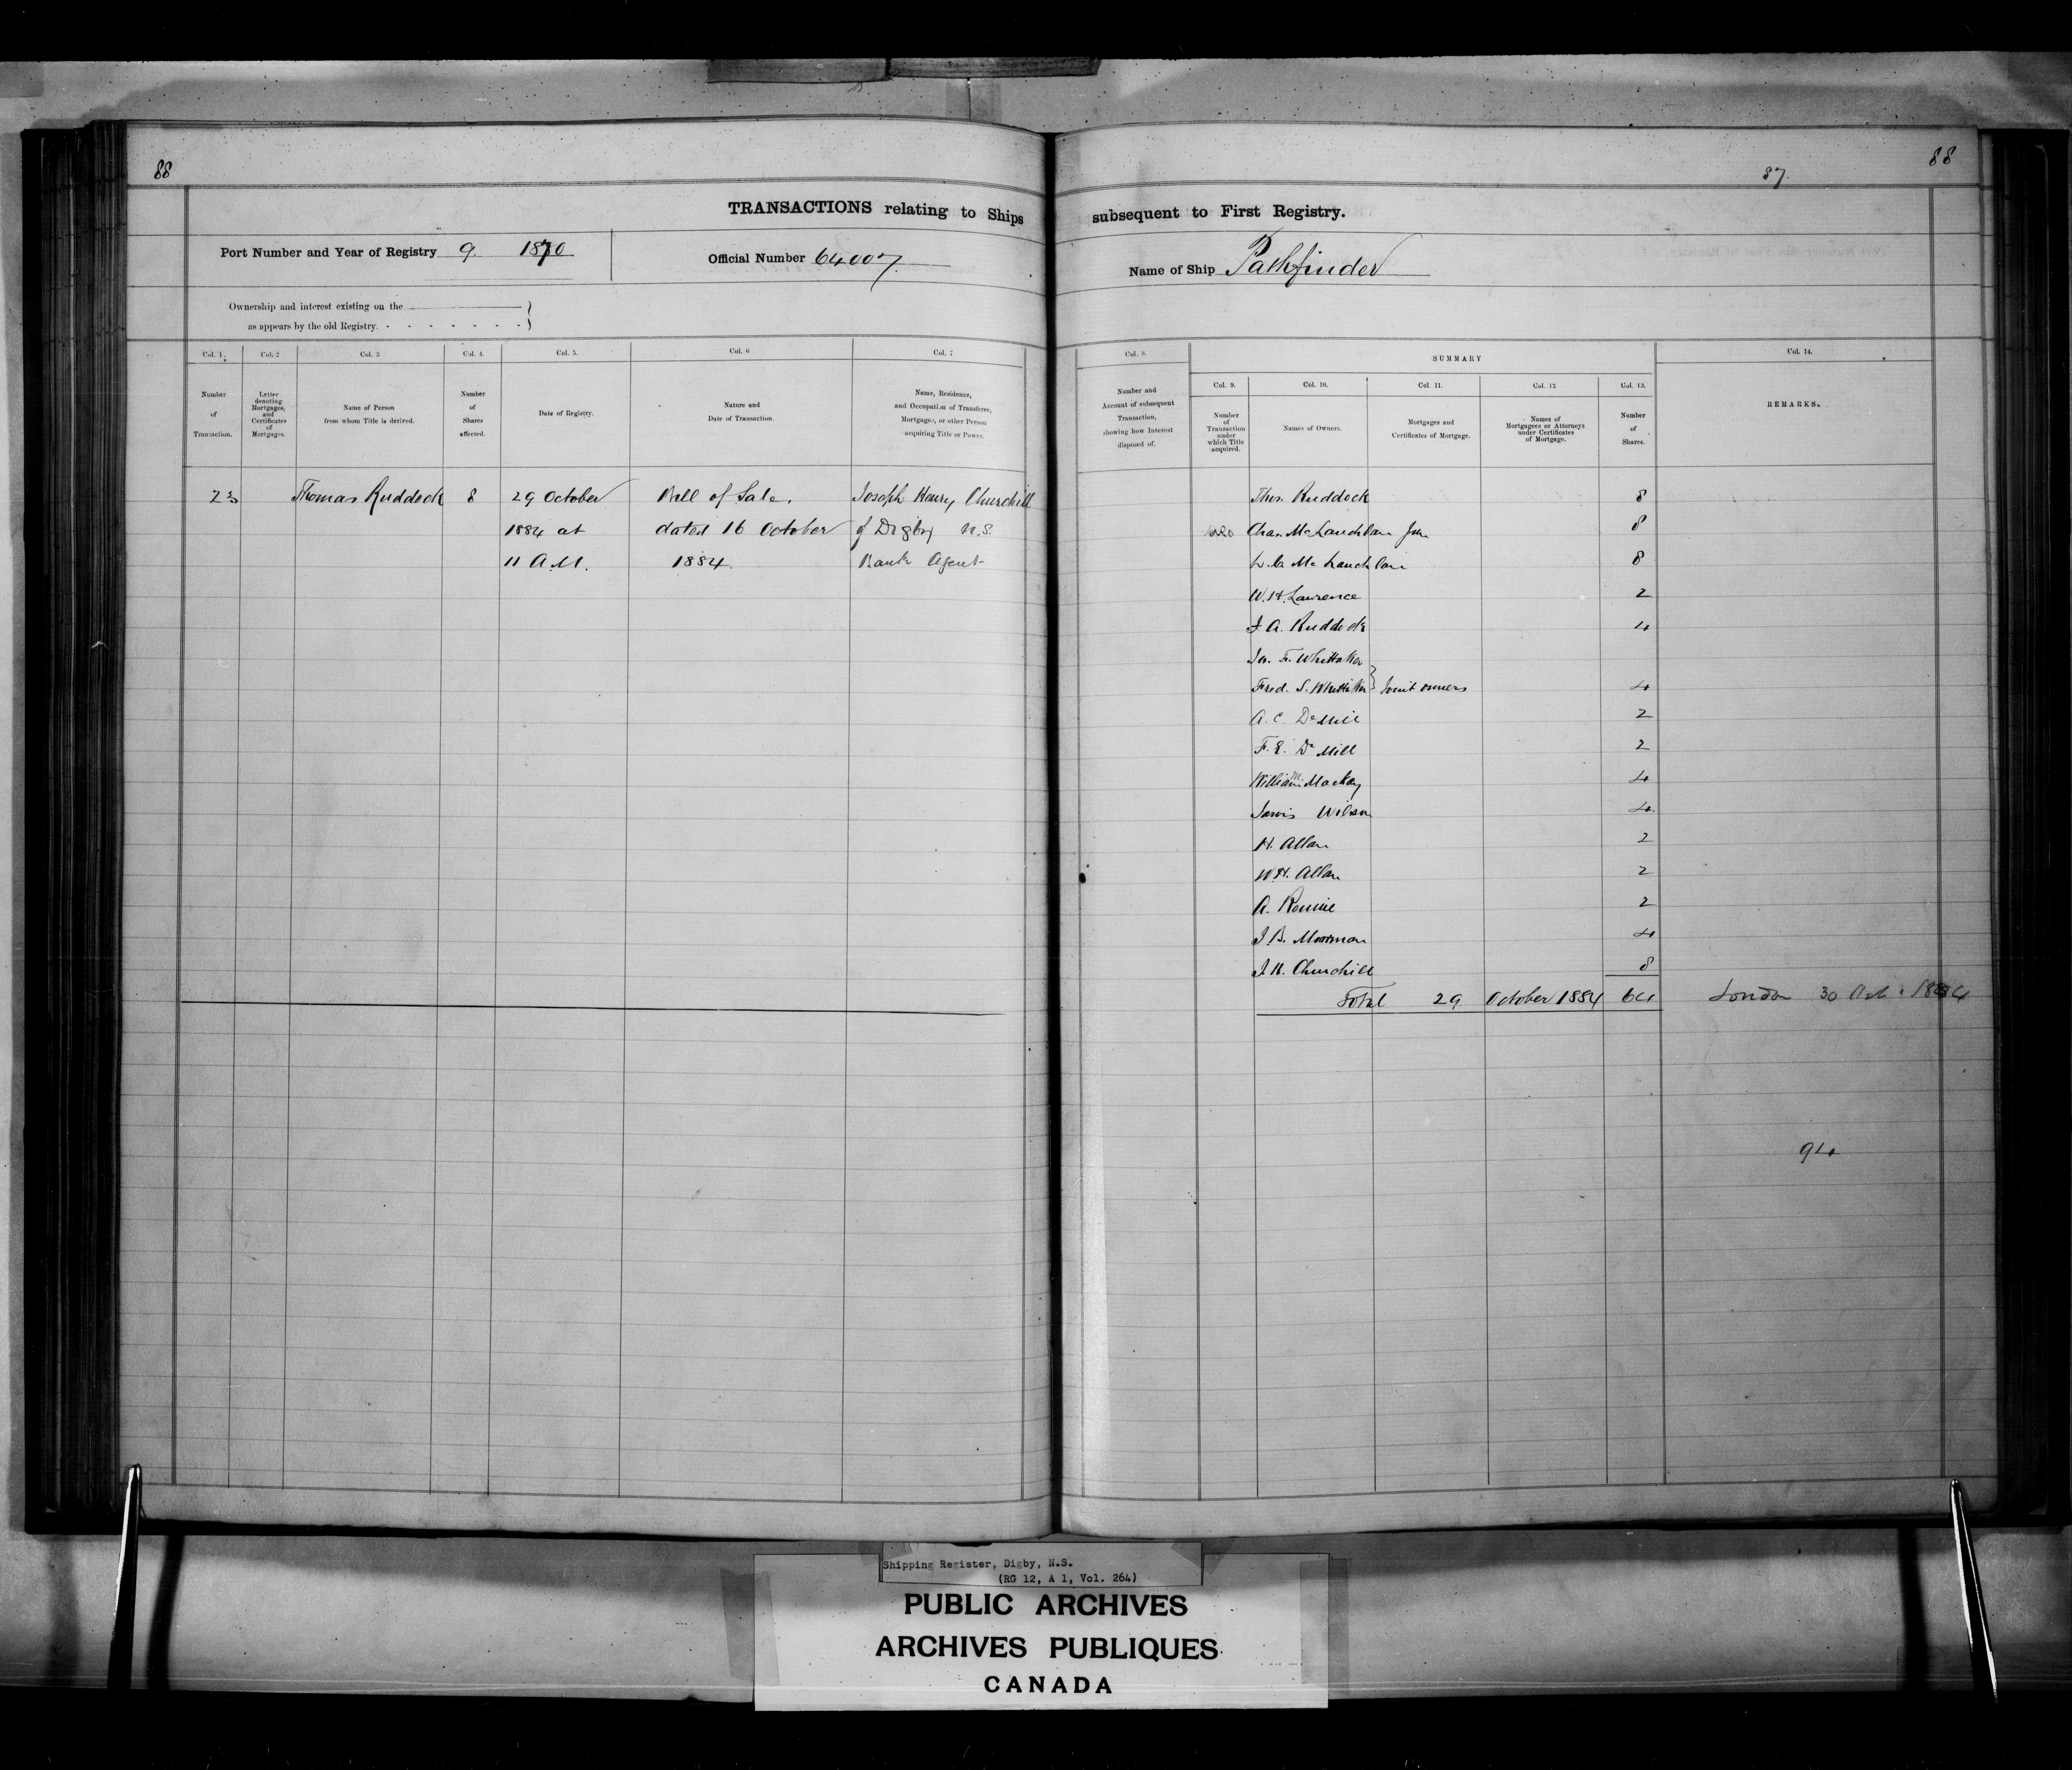 88
TRANSACTIONS relating to Ships
Port Number and Year of Registry 9. 1870
Official Number 64007.
Ownership and interest existing on the
as appears by the old Registry.
Col. 1.
Col. 2
Col. 3
Col. 4.
Col. 5.
Col. 6
Col. 7
Number
of
Transaction.
Letter
denoting
Mortgages,
and
Certificates
of
Mortgages.
Name of Person
from whom Title is derived.
Number
of
Shares
affected.
Date of Registry.
Nature and
Date of Transaction.
Name, Residence,
and Occupation of Transferee,
Mortgagee, or other Person
acquiring Title or Power.
23 Thomas Ruddock 8 29 October Bill of Sale. Joseph Henry Churchill
1884 at dated 16 October of Digby N.S.
11 A.M. 1884. Bank Agent
88
87.
subsequent to First Registry.
Name of Ship Pathfinder
Col. 8.
SUMMARY
Col. 14.
Col. 9.
Col. 10.
Col. 11.
Col. 12
Col. 13.
Number and
Account of subsequent
Transaction,
showing how Interest
disposed of.
Number
of
Transaction
under
which Title
acquired.
Names of Owners.
Mortgages and
Certificates of Mortgage.
Names of
Mortgagees or Attorneys
under Certificates
of Mortgage.
Number
of
Shares.
REMARKS.
Thos. Ruddock 8
Chas. McLauchlan Jun 8
McLauchlan 8
W. H. Lawrence 2
J. A. Ruddock 4
Jas. F. Whittaker
Fred. S. Whittaker } Joint owners 4
A. C. DeMill 2
F. E. DeMill 2
William M. Mackay 4
Jarvis Wilson 4.
H. Allan 2
W. H. Allan 2
A. Rennie 2
J. B. Moorman 4
J. H. Churchill 8
Total 29 October 1884 64 London 30 Oct. 1884
94
Shipping Register, Digby, N.S.
(RG 12, A 1, Vol. 264)
PUBLIC ARCHIVES
ARCHIVES PUBLIQUES
CANADA